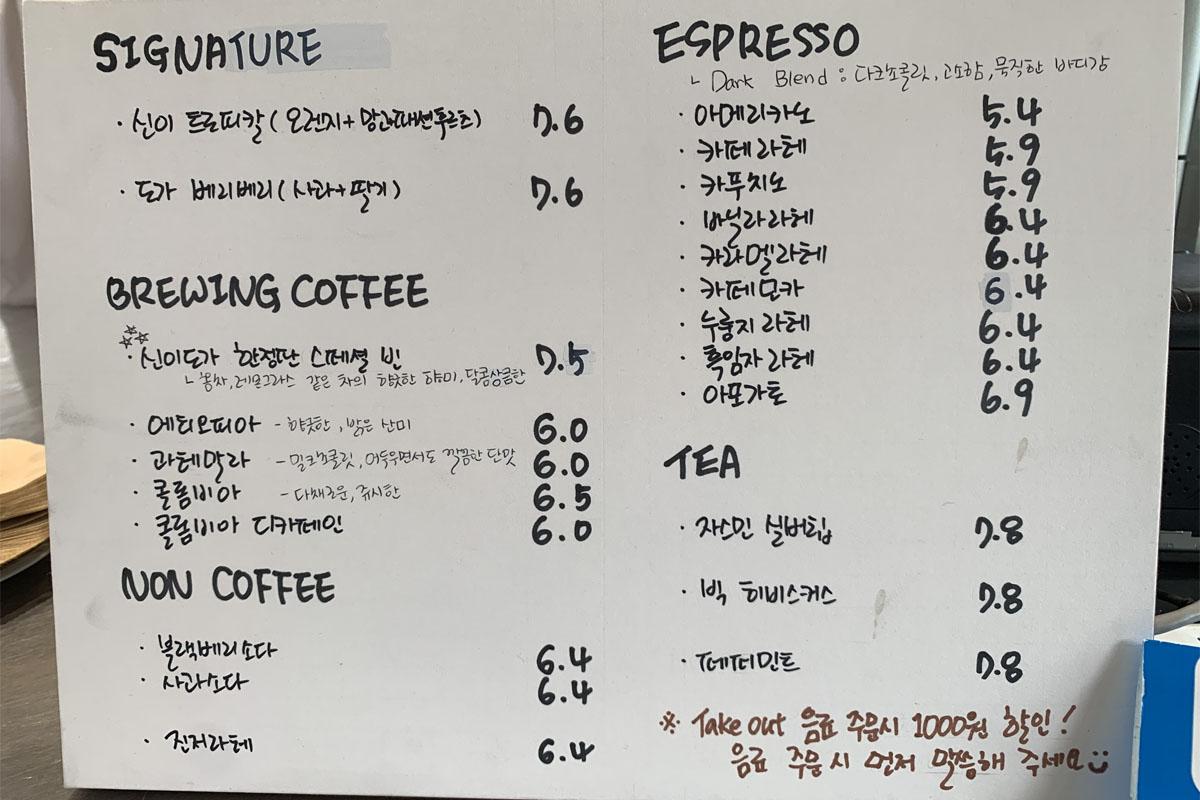 SIGNATURE
· 신이 트로피칼 (오렌지+망고패션후르츠) 7.6
· 도가 베리베리 (사과+딸기) 7.6
BREWING COFFEE
· 신이도가 한정단 스페셜 빈 7.5
ㄴ 홍차, 레몬그라스 같은 차의 향긋한 향미, 달콤상큼한
· 에티오피아 - 향긋한, 밝은 산미 6.0
· 과테말라 - 밀크초콜릿, 어두우면서도 깔끔한 단맛 6.0
· 콜롬비아 - 다채로운, 쥬시한 6.5
· 콜롬비아 디카페인 6.0
NON COFFEE
· 블랙베리소다 6.4
· 사과소다 6.4
· 진저라떼 6.4
ESPRESSO
ㄴ Dark Blend : 다크초콜릿, 고소함, 묵직한 바디감
· 아메리카노 5.4
· 카페라떼 5.9
· 카푸치노 5.9
· 바닐라라떼 6.4
· 카라멜라떼 6.4
· 카페모카 6.4
· 누룽지 라떼 6.4
· 흑임자 라떼 6.4
· 아포가토 6.9
TEA
· 자스민 실버팁 7.8
· 빅 히비스커스 7.8
· 페퍼민트 7.8
※ Take out 음료 주문시 1000원 할인!
음료 주문시 먼저 말씀해 주세요